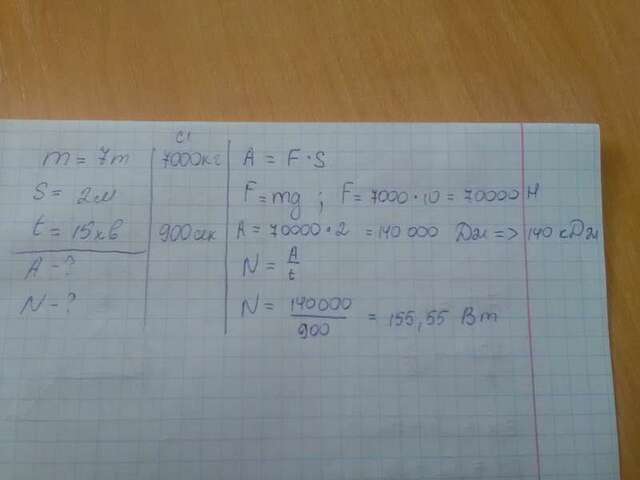 СІ
m = 7т | 7000кг | A = F·S
S = 2м | F = mg ; F = 7000·10 = 70000 Н
t = 15хв | 900сек | A = 70000·2 = 140 000 Дж => 140 кДж
A - ? | N = A/t
N - ? | N = 140000/900 = 155,55 Вт